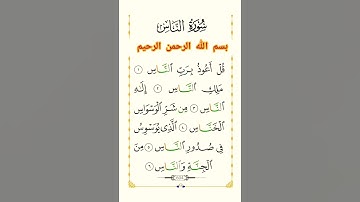 سُورَةُ النَّاسِ
بسم الله الرحمن الرحيم
قُلْ أَعُوذُ بِرَبِّ النَّاسِ ١
مَلِكِ النَّاسِ ٢ إِلَٰهِ
النَّاسِ ٣ مِن شَرِّ الْوَسْوَاسِ
الْخَنَّاسِ ٤ الَّذِي يُوَسْوِسُ
فِي صُدُورِ النَّاسِ ٥ مِنَ
الْجِنَّةِ وَالنَّاسِ ٦